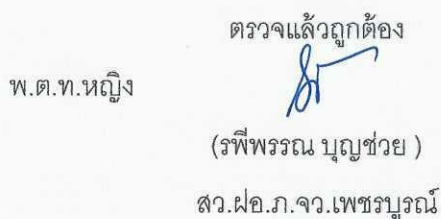 ตรวจแล้วถูกต้อง
พ.ต.ท.หญิง
(รพีพรรณ บุญช่วย )
สว.ฝอ.ภ.จว.เพชรบูรณ์